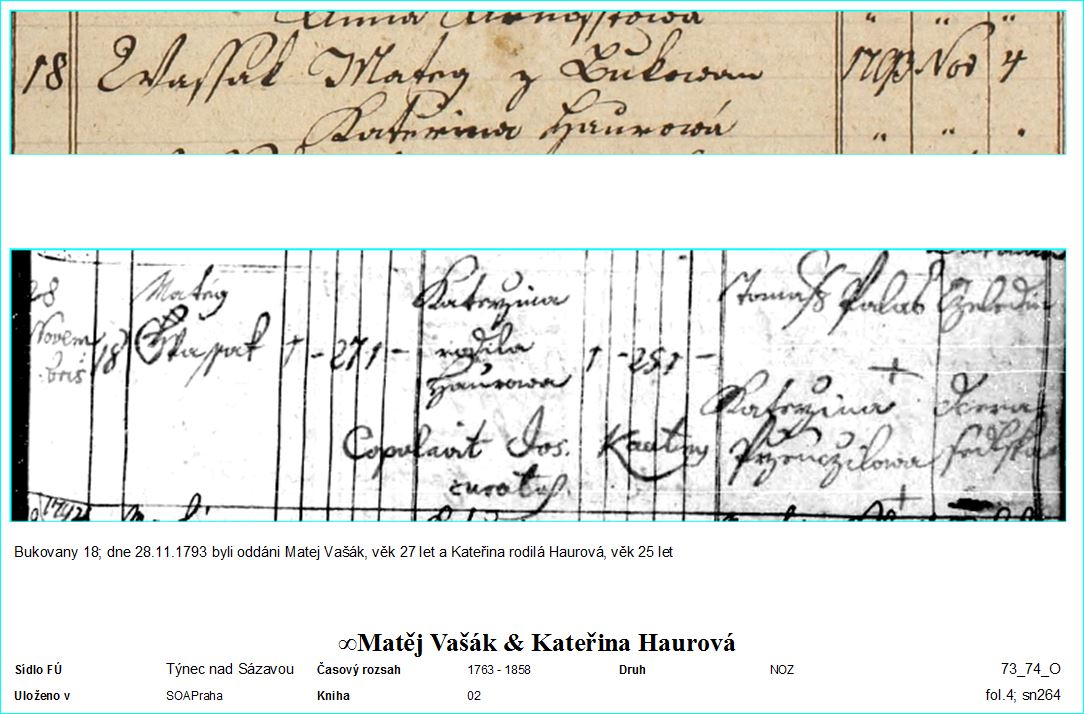 Anna
18 Wassak Mateg z Bukowan 1793 Nov 4
Kateřina Haurowá " " "
28 Matég Kateržina Tomass Palas Čeledin
Novem
bris 18 Wassak 1 - 27 1 - rodila 1 - 25 1 -
Haurowa
Kateržina dcera
Copolavit Jos. sedlska
curatus
Bukovany 18; dne 28.11.1793 byli oddáni Matej Vašák, věk 27 let a Kateřina rodilá Haurová, věk 25 let
∞Matěj Vašák & Kateřina Haurová
Sídlo FÚ Týnec nad Sázavou Časový rozsah 1763 - 1858 Druh NOZ 73_74_O
Uloženo v SOAPraha Kniha 02 fol.4; sn264